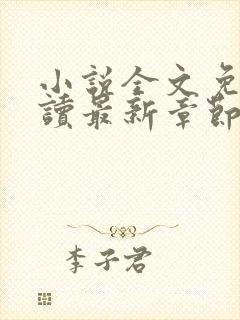 小説全文免
讀最新章節
李子君